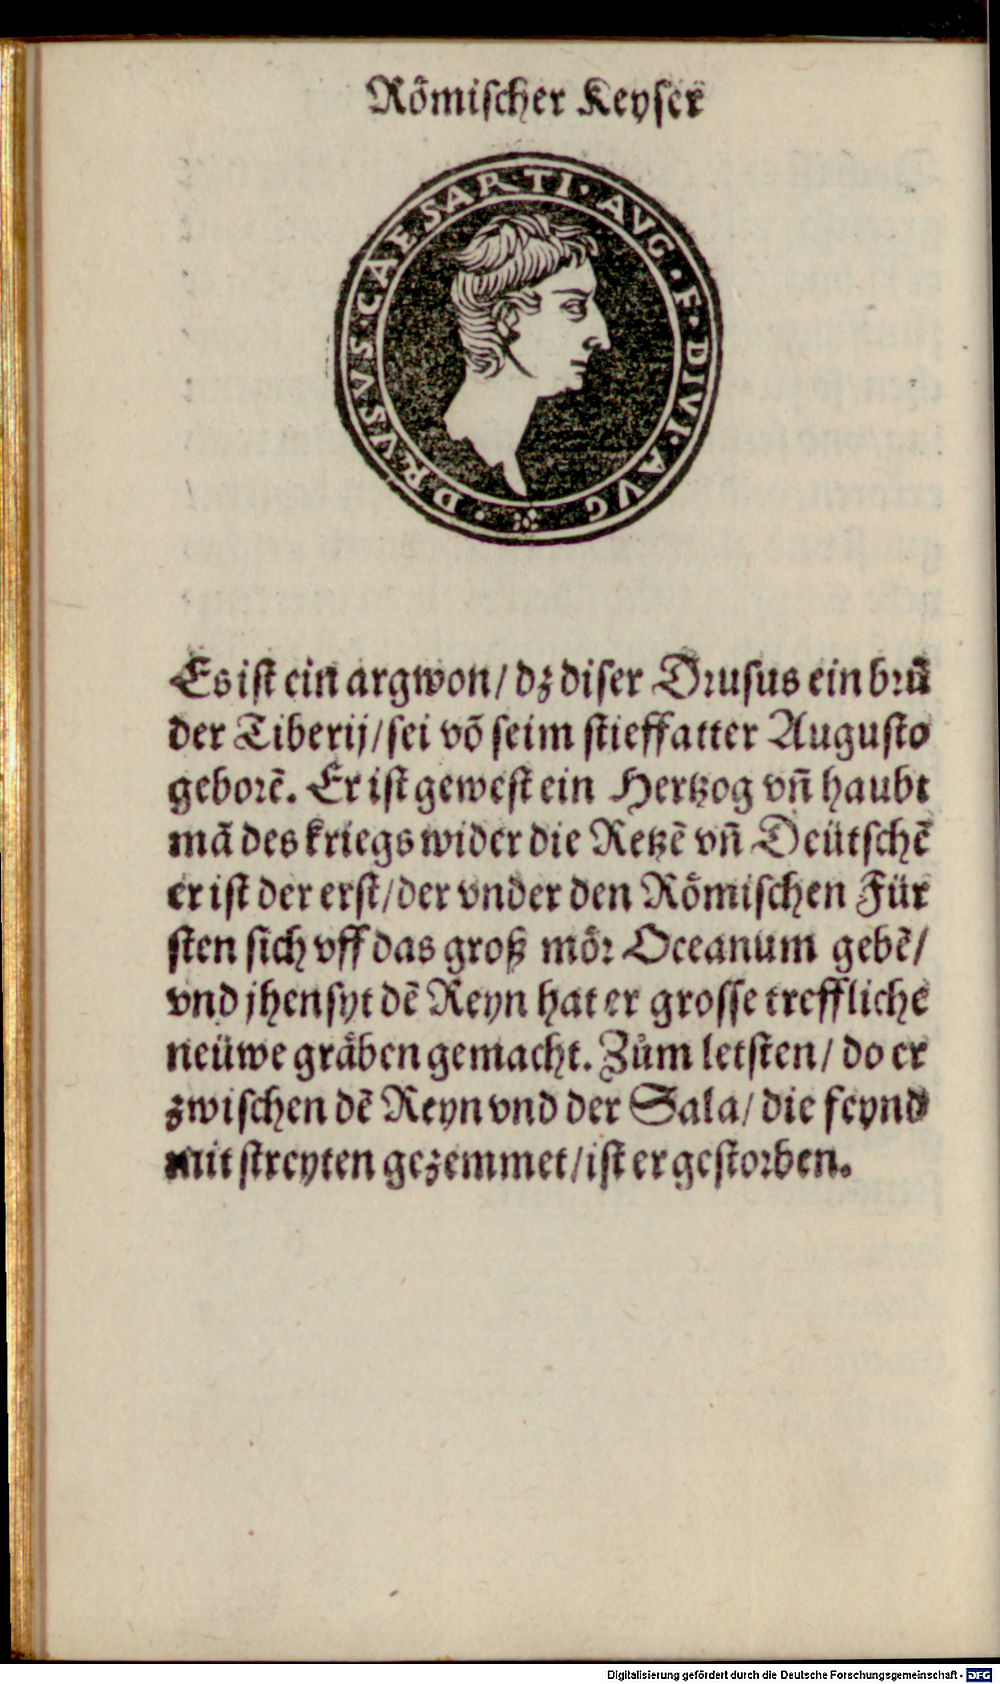 Roͤmiſcher Keyſer
DRVSVS · CAESAR · TI · AVG · F · DIVI · AVG
Es iſt ein argwon / dz diſer Druſus ein bruͦ
der Tiberij / ſei võ ſeim ſtieffatter Auguſto
geborẽ. Er iſt geweſt ein Hertzog vñ haubt
mã des kriegs wider die Retzẽ vñ Deütſchẽ
er iſt der erſt / der vnder den Roͤmiſchen Für
ſten ſich vff das groß moͤr Oceanum gebẽ /
vnd jhenſyt dẽ Reyn hat er groſſe treffliche
neüwe graͤben gemacht. Zuͦm letſten / do er
zwiſchen dẽ Reyn vnd der Sala / die feynd
mit ſtreyten gezemmet / iſt er geſtorben.
Digitalisierung gefördert durch die Deutsche Forschungsgemeinschaft - DFG